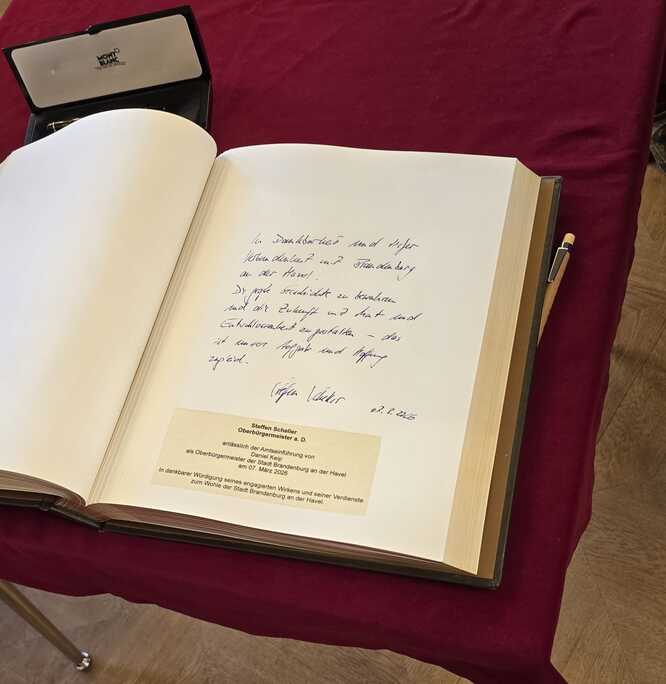 MONT
BLANC
In Dankbarkeit und tiefer
Verbundenheit mit Brandenburg
an der Havel.
Die große Geschichte zu bewahren
und die Zukunft mit Mut und
Entschlossenheit zu gestalten – das
ist unsere Aufgabe und Hoffnung
zugleich.
Steffen Scheller
07. 3. 2026
Steffen Scheller
Oberbürgermeister a. D.
anlässlich der Amtseinführung von
Daniel Keip
als Oberbürgermeister der Stadt Brandenburg an der Havel
am 07. März 2026
In dankbarer Würdigung seines engagierten Wirkens und seiner Verdienste
zum Wohle der Stadt Brandenburg an der Havel.